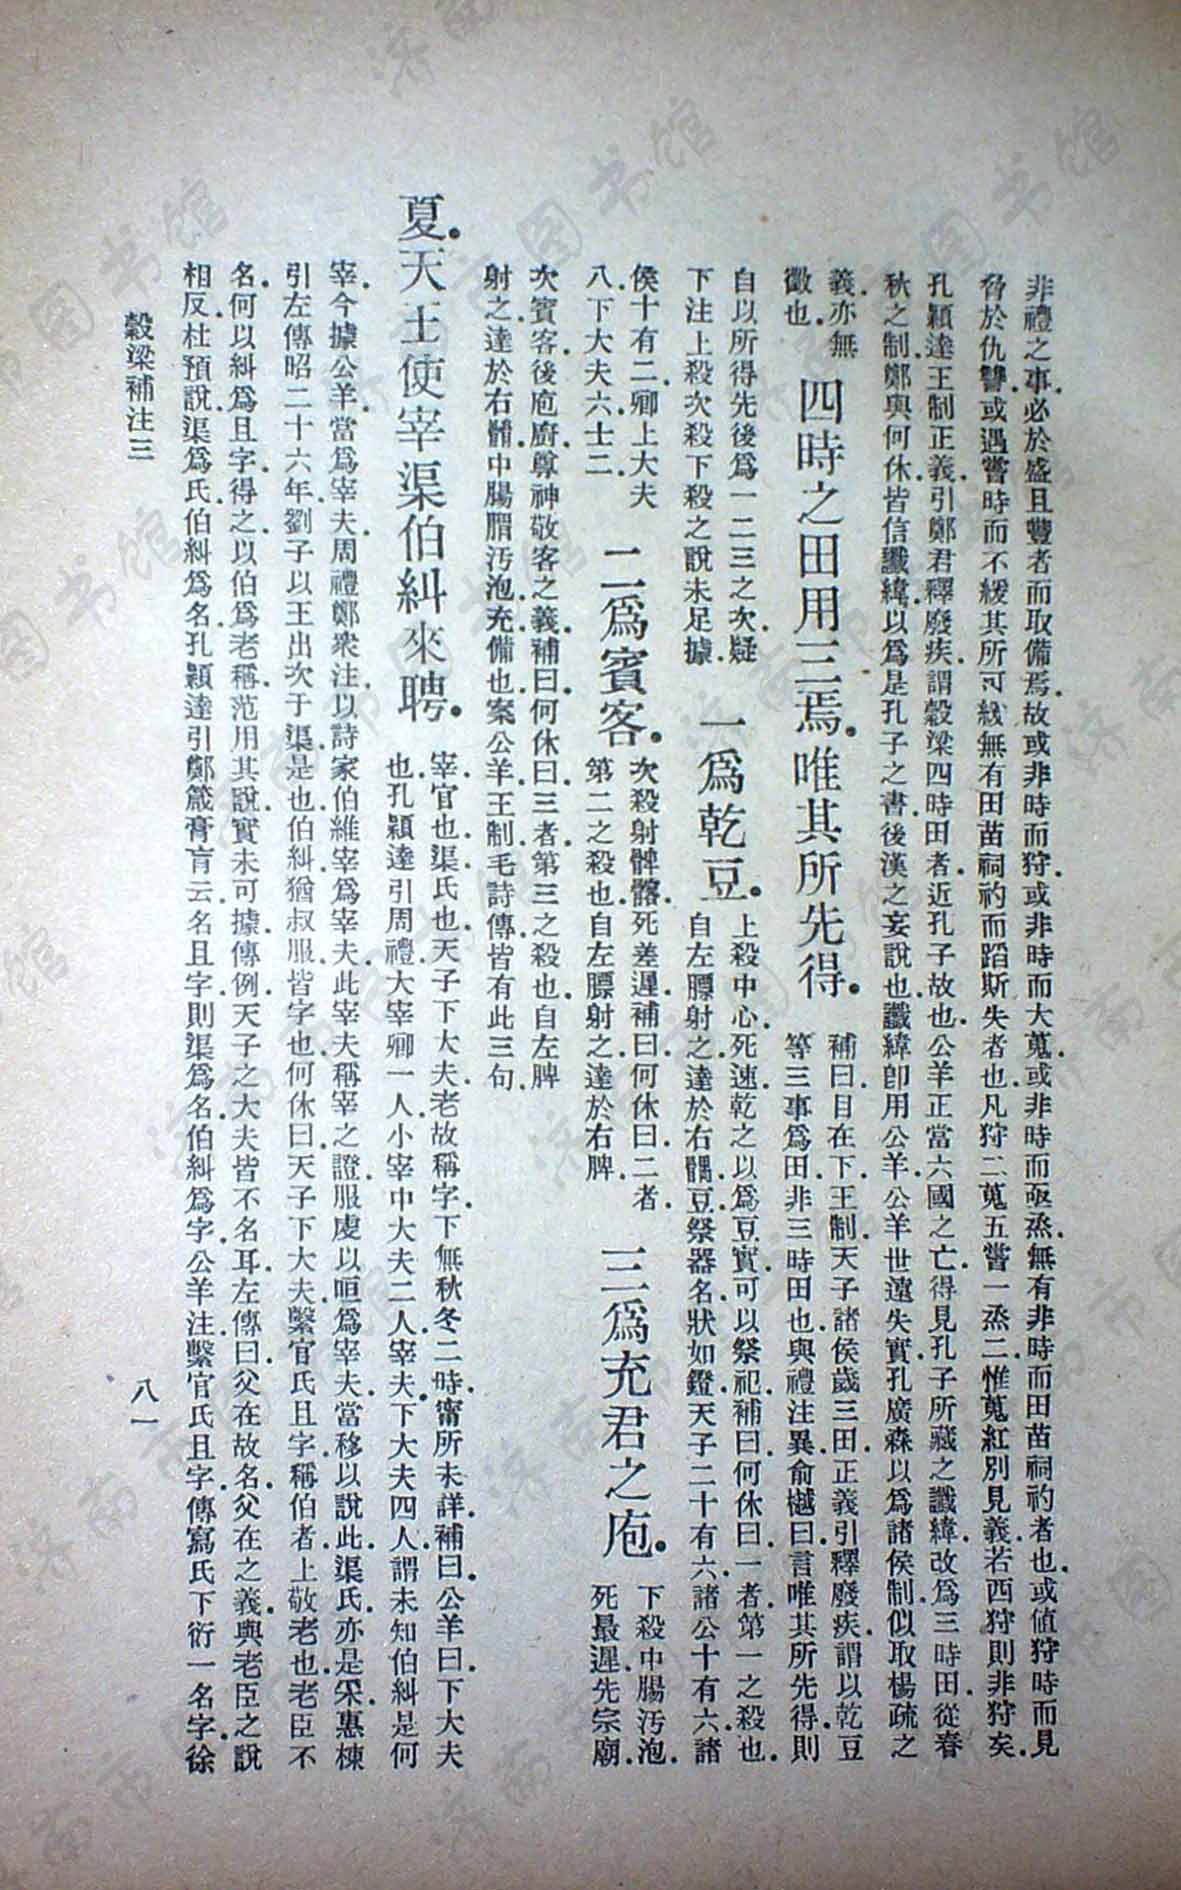 非禮之事必於盛且豐者而取備焉故或非時而狩或非時而大蒐或非時而亟烝無有非時而田苗祠礿者也或值狩時而見
脅於仇讐或遇嘗時而不緩其所可緩無有田苗祠礿而蹈斯失者也凡狩二蒐五嘗一烝二惟蒐紅別見義若西狩則非狩矣
孔穎達王制正義引鄭君釋廢疾謂穀梁四時田者近孔子故也公羊正當六國之亡得見孔子所藏之讖緯改爲三時田從春
秋之制鄭與何休皆信讖緯以爲是孔子之書後漢之妄說也讖緯卽用公羊公羊世遠失實孔廣森以爲諸侯制似取楊疏之
義亦無
徵也
四時之田用三焉唯其所先得
補曰目在下王制天子諸侯歲三田正義引釋廢疾謂以乾豆
等三事爲田非三時田也與禮注異俞樾曰言唯其所先得則
自以所得先後爲一二三之次疑
下注上殺次殺下殺之說未足據
一爲乾豆
上殺中心死速乾之以爲豆實可以祭祀補曰何休曰一者第一之殺也
自左膘射之達於右髃豆祭器名狀如鐙天子二十有六諸公十有六諸
侯十有二卿上大夫
八下大夫六士二
二爲賓客
次殺射髀髂死差遲補曰何休曰二者
第二之殺也自左膘射之達於右脾
三爲充君之庖
下殺中腸汚泡
死最遲先宗廟
次賓客後庖廚尊神敬客之義補曰何休曰三者第三之殺也自左脾
射之達於右䯚中腸胃汚泡充備也案公羊王制毛詩傳皆有此三句
夏天王使宰渠伯糾來聘
宰官也渠氏也天子下大夫老故稱字下無秋冬二時甯所未詳補曰公羊曰下大夫
也孔穎達引周禮大宰卿一人小宰中大夫二人宰夫下大夫四人謂未知伯糾是何
宰今據公羊當爲宰夫周禮鄭衆注以詩家伯維宰爲宰夫此宰夫稱宰之證服虔以咺爲宰夫當移以說此渠氏亦是采惠棟
引左傳昭二十六年劉子以王出次于渠是也伯糾猶叔服皆字也何休曰天子下大夫繫官氏且字稱伯者上敬老也老臣不
名何以糾爲且字得之以伯爲老稱范用其說實未可據傳例天子之大夫皆不名耳左傳曰父在故名父在之義與老臣之說
相反杜預說渠爲氏伯糾爲名孔穎達引鄭箴膏肓云名且字則渠爲名伯糾爲字公羊注繫官氏且字傳寫氏下衍一名字徐
穀梁補注三
八一